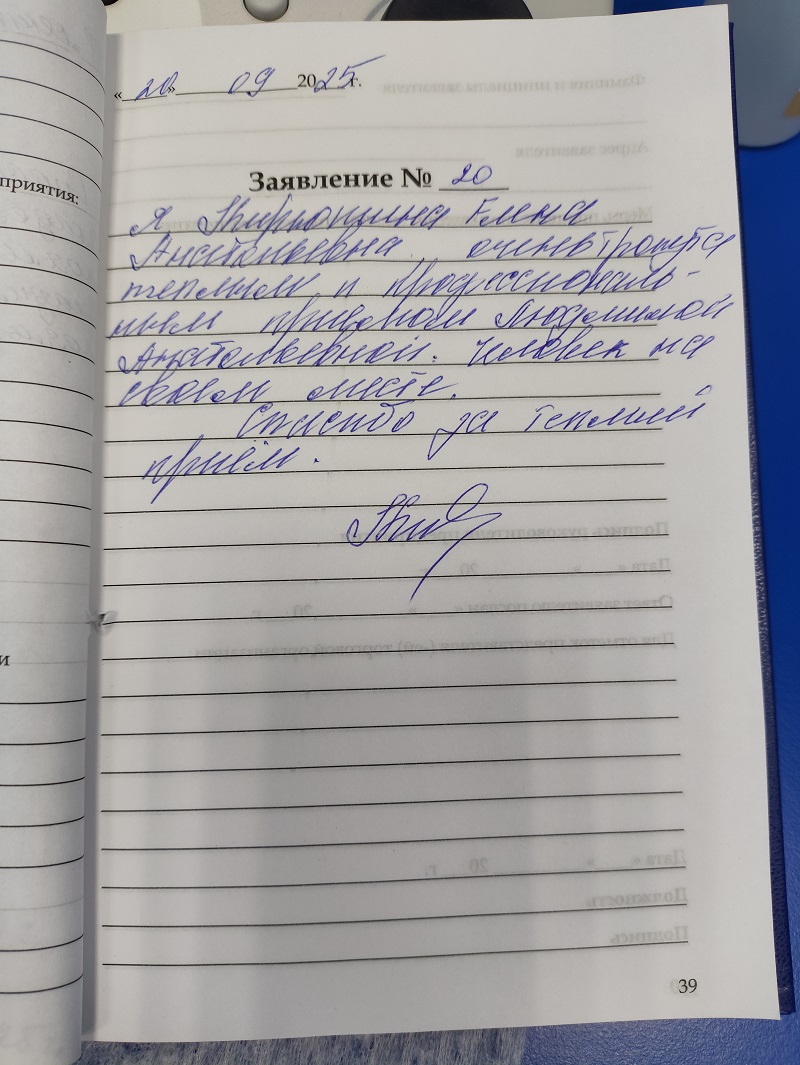 приятия:
и
«20» 09 2025г.
Заявление № 20
Я Елена
Анатольевна очень тронута
теплым и профессиональ-
ным приёмом Людмилой
Анатольевной. Человек на
своем месте.
Спасибо за теплый
приём.
39